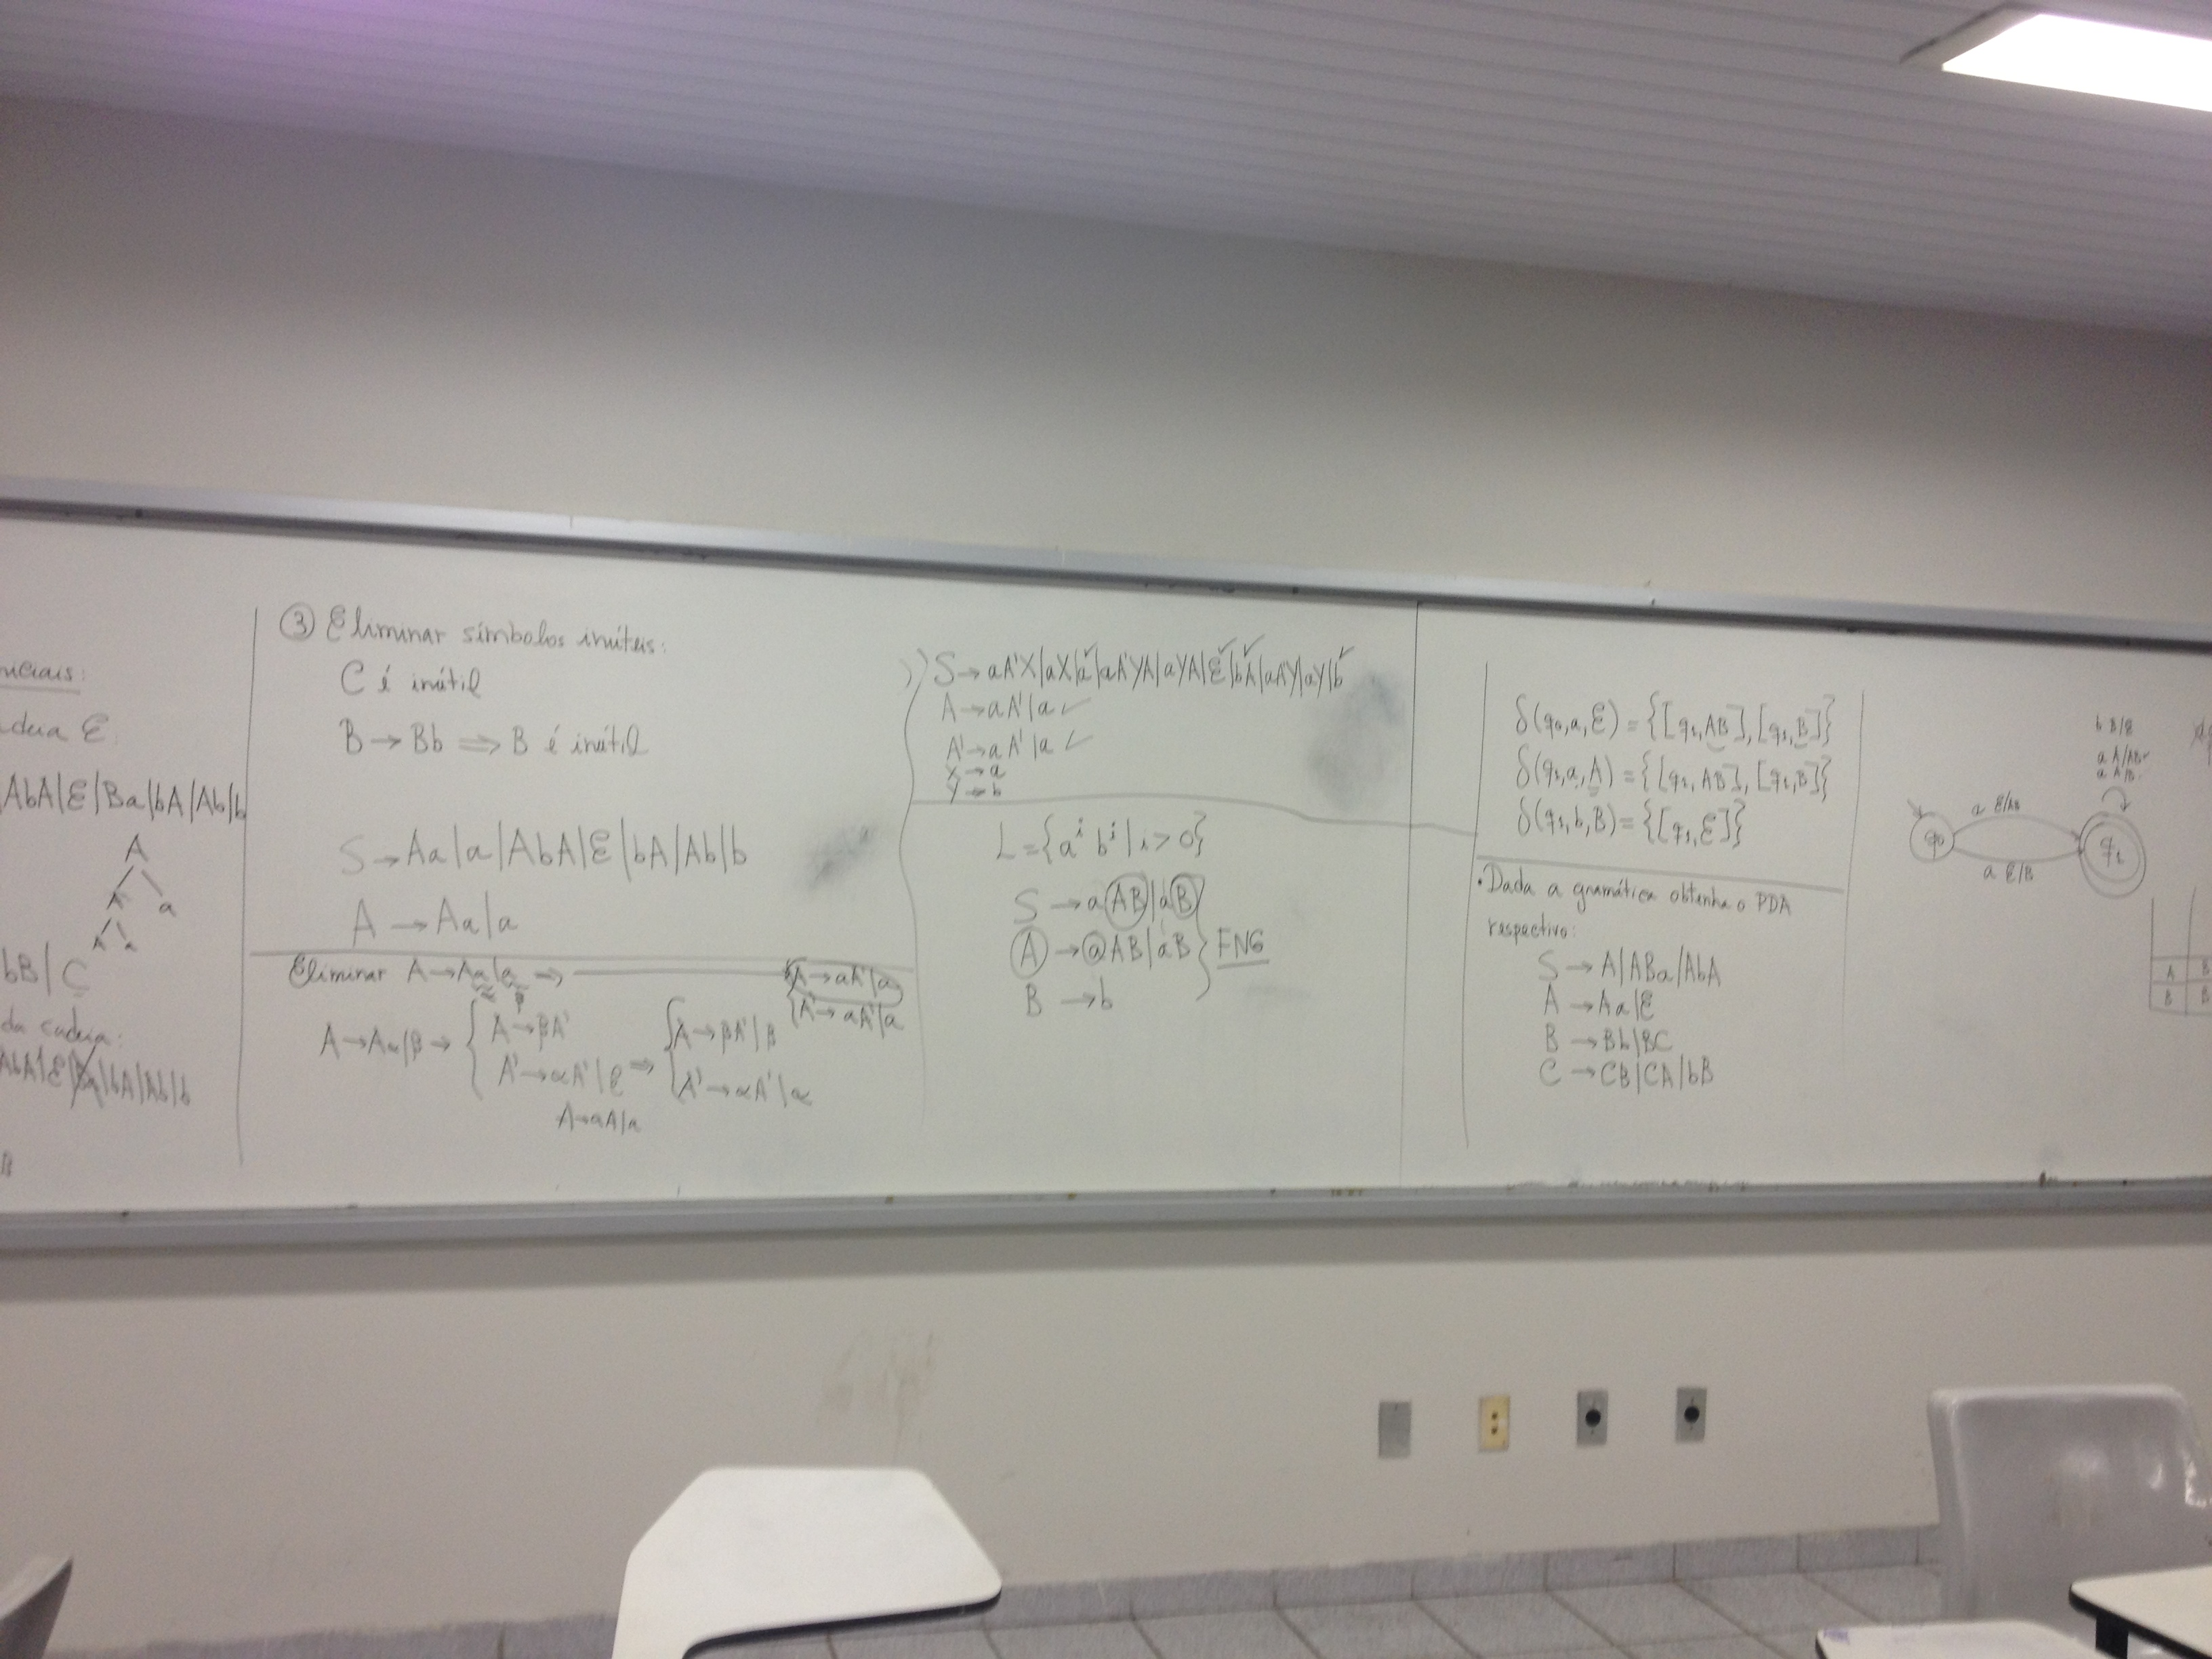 deia ε
AbA|ε|Ba|bA|Ab|b
A
A a
A a
bB|C
da cadeia:
AbA|ε|Ba|bA|Ab|b
B
③ Eliminar símbolos inúteis:
C é inútil
B → Bb ⟹ B é inútil
S → Aa|a|AbA|ε|bA|Ab|b
A → Aa|a
Eliminar A → Aa|a ⟹
A → aA'|a
A' → aA'|a
A → Aα|β →
A → βA'
A' → αA'|ε ⟹
A → βA'|β
A' → αA'|α
A → aA|a
S → aA'X|aX|a|aA'YA|aYA|ε|bA|aA'Y|aY|b
A → aA'|a ✓
A' → aA'|a ✓
X → a
Y → b
L = {aⁱ bⁱ | i > 0}
S → aAB|aB
A → aAB|aB } FNG
B → b
δ(q₀,a,ε) = {[q₁,AB],[q₁,B]}
δ(q₁,a,A) = {[q₁,AB],[q₁,B]}
δ(q₁,b,B) = {[q₁,ε]}
• Dada a gramática obtenha o PDA
respectivo:
S → A|ABa|AbA
A → Aa|ε
B → Bb|BC
C → CB|CA|bB
b B/ε
a A/AB
a A/B
a ε/AB
q₀
q₁
a ε/B
A B
B B